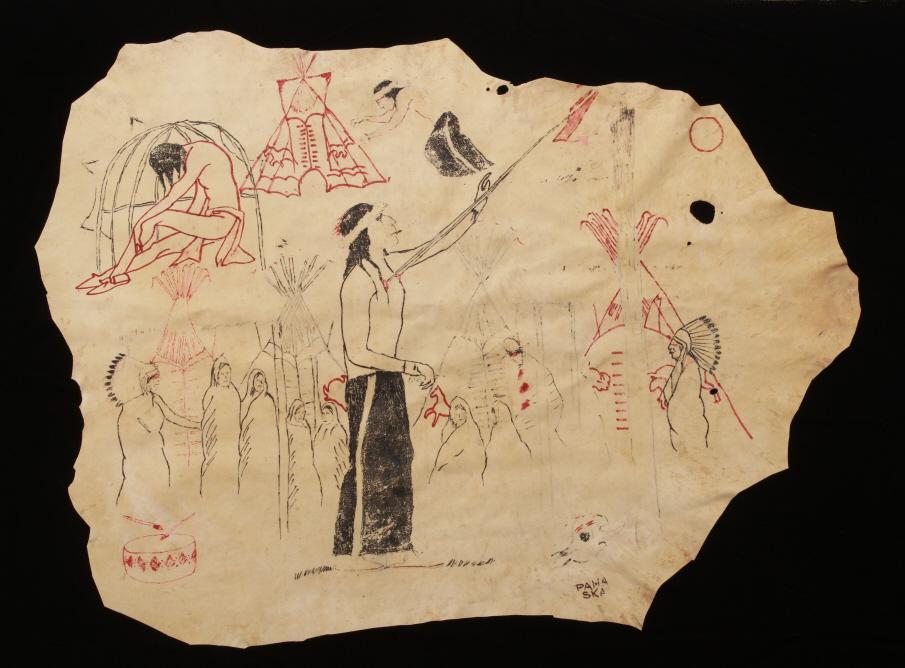 PAHA
SKA